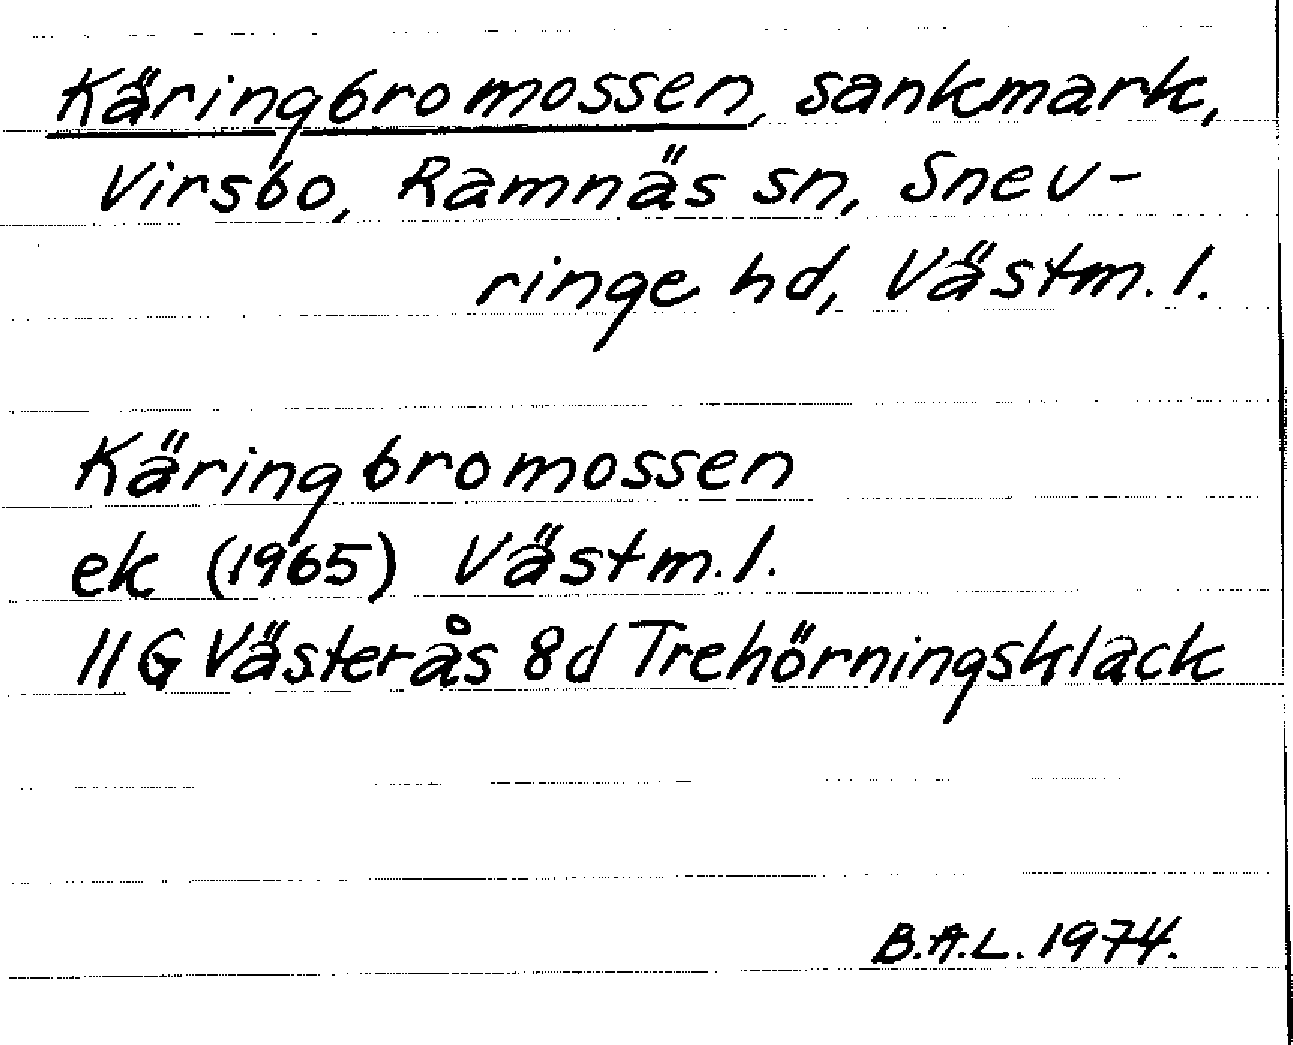 Käringbromossen, sankmark,
Virsbo, Ramnäs sn, Snev-
ringe hd, Västm. l.
Käringbromossen
ek (1965) Västm. l.
11G Västerås 8d Trehörningsklack
B.A.L. 1974.